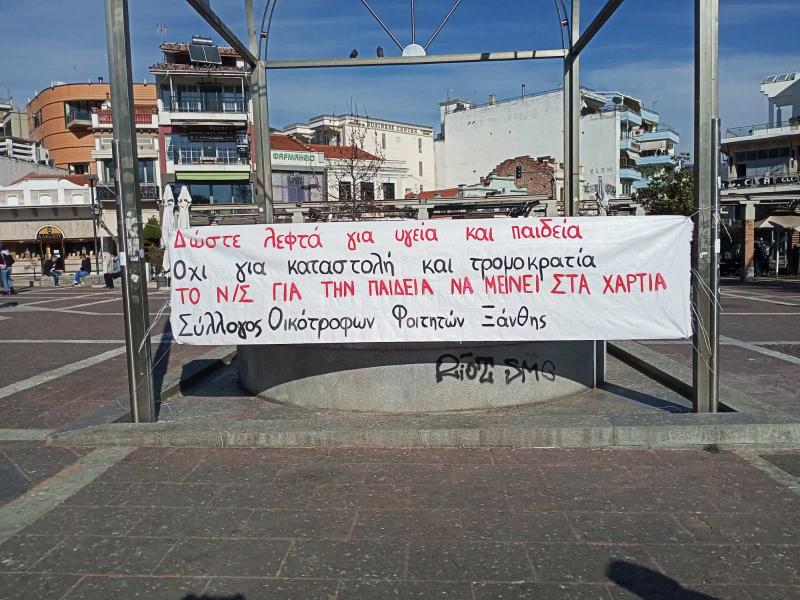 ΦΑΡΜΑΚΕΙΟ
BUSINESS CENTER
Δώστε λεφτά για υγεία και παιδεία
Όχι για καταστολή και τρομοκρατία
ΤΟ Ν/Σ ΓΙΑ ΤΗΝ ΠΑΙΔΕΙΑ ΝΑ ΜΕΙΝΕΙ ΣΤΑ ΧΑΡΤΙΑ
Σύλλογος Οικότροφων Φοιτητών Ξάνθης
RiOT SMG